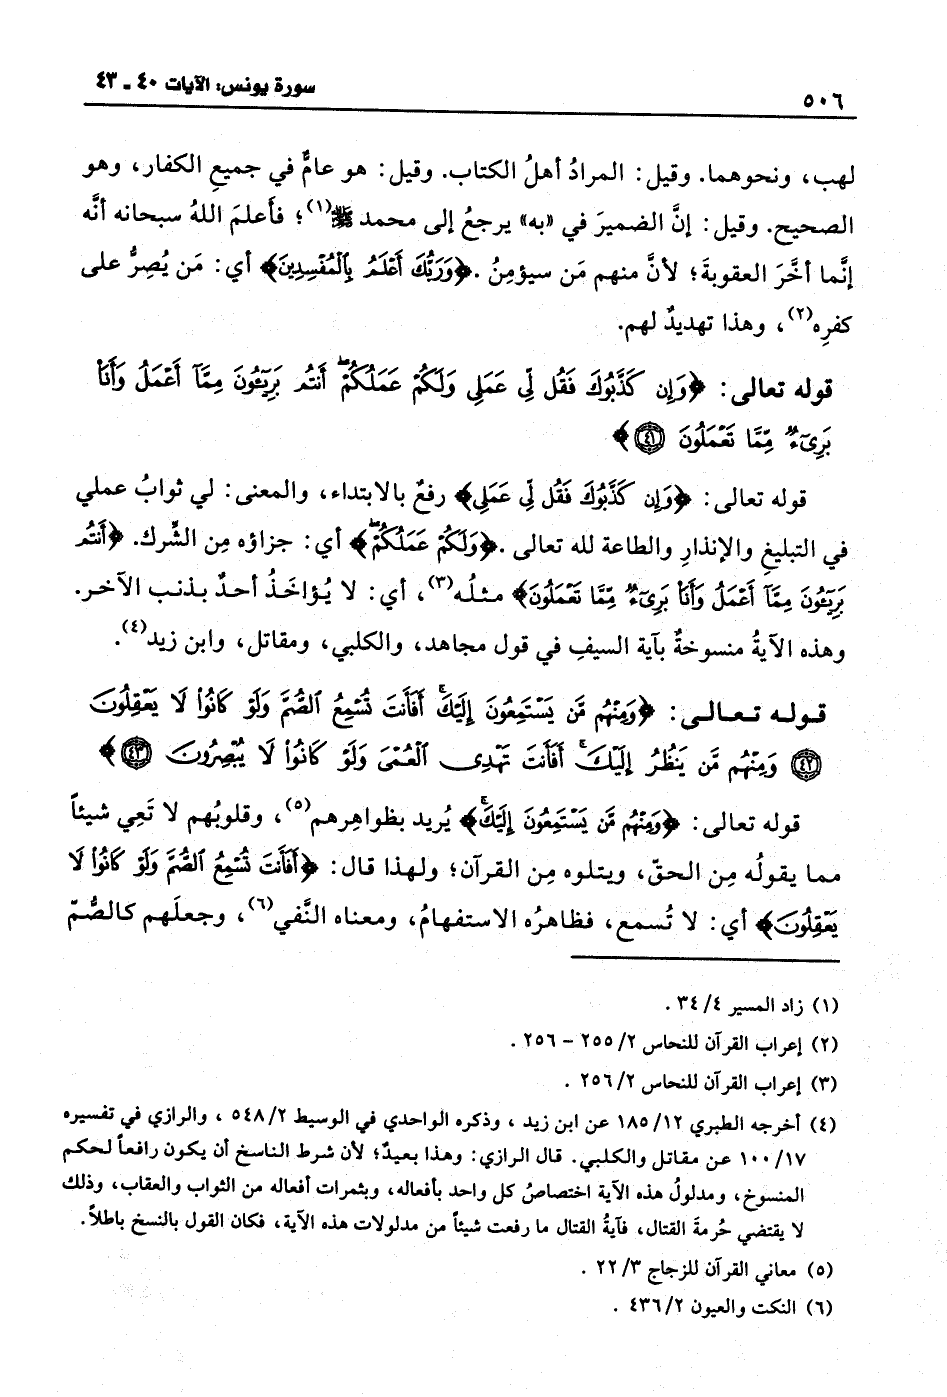 ٥٠٦ سورة يونس: الآيات ٤٠ - ٤٣
لهب، ونحوهما. وقيل: المرادُ أهلُ الكتاب. وقيل: هو عامٌّ في جميعِ الكفار، وهو
الصحيح. وقيل: إنَّ الضميرَ في «به» يرجعُ إلى محمد ﷺ(١)؛ فأَعلمَ اللهُ سبحانه أنَّه
إنَّما أخَّرَ العقوبةَ؛ لأنَّ منهم مَن سيؤمنُ. ﴿وَرَبُّكَ أَعْلَمُ بِالْمُفْسِدِينَ﴾ أي: مَن يُصِرُّ على
كفرِه(٢)، وهذا تهديدٌ لهم.
قوله تعالى: ﴿وَإِن كَذَّبُوكَ فَقُل لِّي عَمَلِي وَلَكُمْ عَمَلُكُمْ ۖ أَنتُم بَرِيٓـُٔونَ مِمَّآ أَعْمَلُ وَأَنَا۠
بَرِيٓءٌ مِّمَّا تَعْمَلُونَ ٤١﴾
قوله تعالى: ﴿وَإِن كَذَّبُوكَ فَقُل لِّي عَمَلِي﴾ رفعٌ بالابتداء، والمعنى: لي ثوابُ عملي
في التبليغِ والإنذارِ والطاعة لله تعالى. ﴿وَلَكُمْ عَمَلُكُمْ ۖ﴾ أي: جزاؤه مِن الشِّرك. ﴿أَنتُم
بَرِيٓـُٔونَ مِمَّآ أَعْمَلُ وَأَنَا۠ بَرِيٓءٌ مِّمَّا تَعْمَلُونَ﴾ مثلُه(٣)، أي: لا يُؤاخَذُ أحدٌ بذنب الآخر.
وهذه الآيةُ منسوخةٌ بآية السيفِ في قول مجاهد، والكلبي، ومقاتل، وابن زيد(٤).
قوله تعالى: ﴿وَمِنْهُم مَّن يَسْتَمِعُونَ إِلَيْكَ ۚ أَفَأَنتَ تُسْمِعُ ٱلصُّمَّ وَلَوْ كَانُوا۟ لَا يَعْقِلُونَ
٤٢ وَمِنْهُم مَّن يَنظُرُ إِلَيْكَ ۚ أَفَأَنتَ تَهْدِى ٱلْعُمْىَ وَلَوْ كَانُوا۟ لَا يُبْصِرُونَ ٤٣﴾
قوله تعالى: ﴿وَمِنْهُم مَّن يَسْتَمِعُونَ إِلَيْكَ ۚ﴾ يُريد بظواهِرهم(٥)، وقلوبُهم لا تَعِي شيئاً
مما يقولُه مِن الحقّ، ويتلوه مِن القرآن؛ ولهذا قال: ﴿أَفَأَنتَ تُسْمِعُ ٱلصُّمَّ وَلَوْ كَانُوا۟ لَا
يَعْقِلُونَ﴾ أي: لا تُسمع، فظاهرُه الاستفهامُ، ومعناه النَّفي(٦)، وجعلَهم كالصُّمّ
(١) زاد المسير ٤/ ٣٤ .
(٢) إعراب القرآن للنحاس ٢/ ٢٥٥ – ٢٥٦ .
(٣) إعراب القرآن للنحاس ٢/ ٢٥٦ .
(٤) أخرجه الطبري ١٢/ ١٨٥ عن ابن زيد ، وذكره الواحدي في الوسيط ٢/ ٥٤٨ ، والرازي في تفسيره
١٧/ ١٠٠ عن مقاتل والكلبي. قال الرازي: وهذا بعيدٌ؛ لأن شرط الناسخ أن يكون رافعاً لحكم
المنسوخ، ومدلولُ هذه الآية اختصاصُ كل واحد بأفعاله، وبثمرات أفعاله من الثواب والعقاب، وذلك
لا يقتضي حُرمةَ القتال، فآيةُ القتال ما رفعت شيئاً من مدلولات هذه الآية، فكان القول بالنسخ باطلاً.
(٥) معاني القرآن للزجاج ٣/ ٢٢ .
(٦) النكت والعيون ٢/ ٤٣٦ .